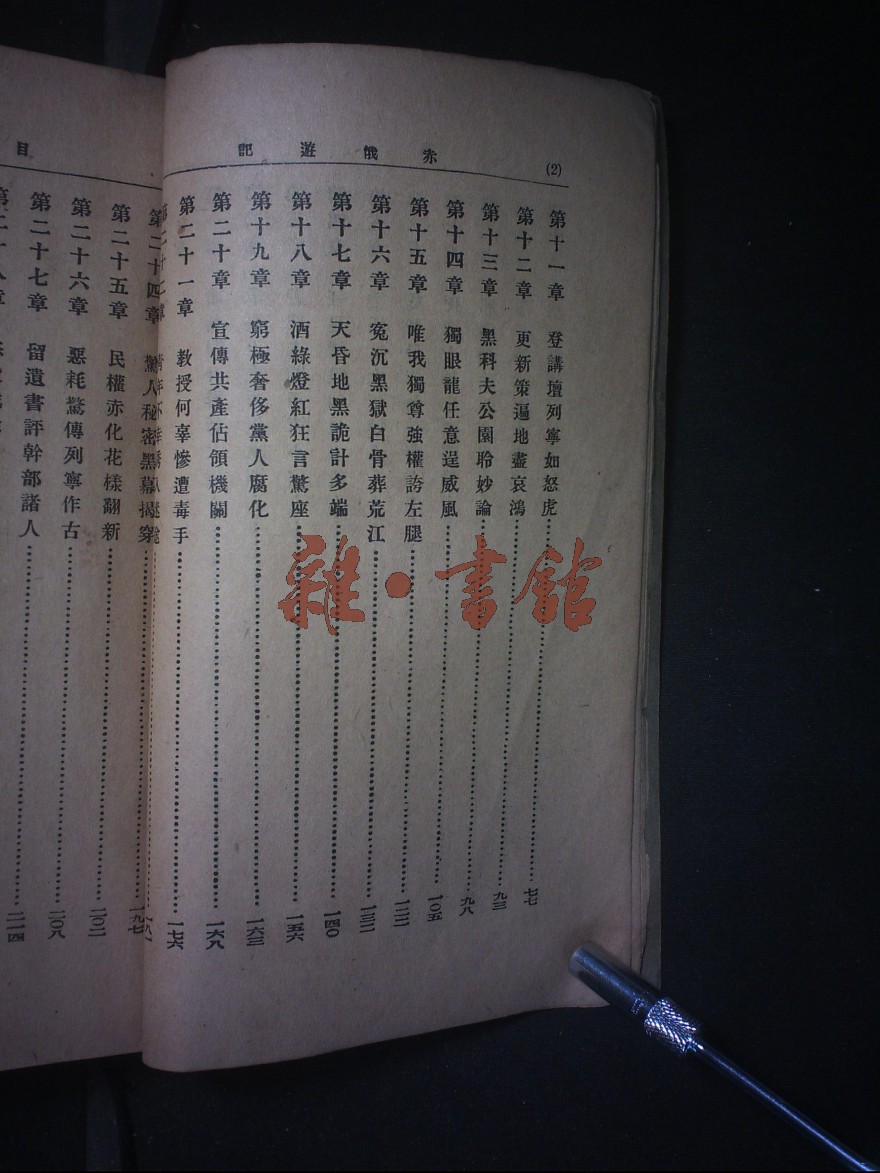 (2)
赤俄遊記
第十一章　登講壇列寧如怒虎……七七
第十二章　更新策遍地盡哀鴻……九三
第十三章　黑科夫公園聆妙論……九八
第十四章　獨眼龍任意逞威風……一〇五
第十五章　唯我獨尊強權誇左腿……一二二
第十六章　冤沉黑獄白骨葬荒江……一三二
第十七章　天昏地黑詭計多端……一四〇
第十八章　酒綠燈紅狂言驚座……一五六
第十九章　窮極奢侈黨人腐化……一六三
第二十章　宣傳共產佔領機關……一六八
第二十一章　教授何辜慘遭毒手……一七六
目
第二十四章　驚人秘密黑幕揭穿……一九七
第二十五章　民權赤化花樣翻新……二〇二
第二十六章　惡耗驚傳列寧作古……二〇八
第二十七章　留遺書評幹部諸人……二一四
第二十八章
雜·書館